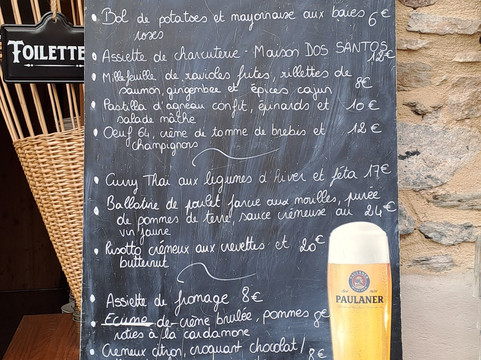 TOILETTE
• Bol de potatoes et mayonnaise aux baies 6€
roses
• Assiette de charcuterie - Maison DOS SANTOS 12€
• Millefeuille de ravioles frites, rillettes de
saumon, gingembre et épices cajun 8€
• Pastilla d'agneau confit, épinards et 10€
salade mâche
• Oeuf 64, crème de tomme de brebis et 12€
champignons
• Curry Thaï aux légumes d'hiver et féta 17€
• Ballotine de poulet farcie aux morilles, purée
de pommes de terre, sauce crémeuse au 24€
vin jaune
• Risotto crémeux aux crevettes et 20€
butternut
• Assiette de fromage 8€
• Ecume de crème brulée, pommes 8€
roties à la cardamome
• Cremeux citron, croquant chocolat / 8€
PAULANER